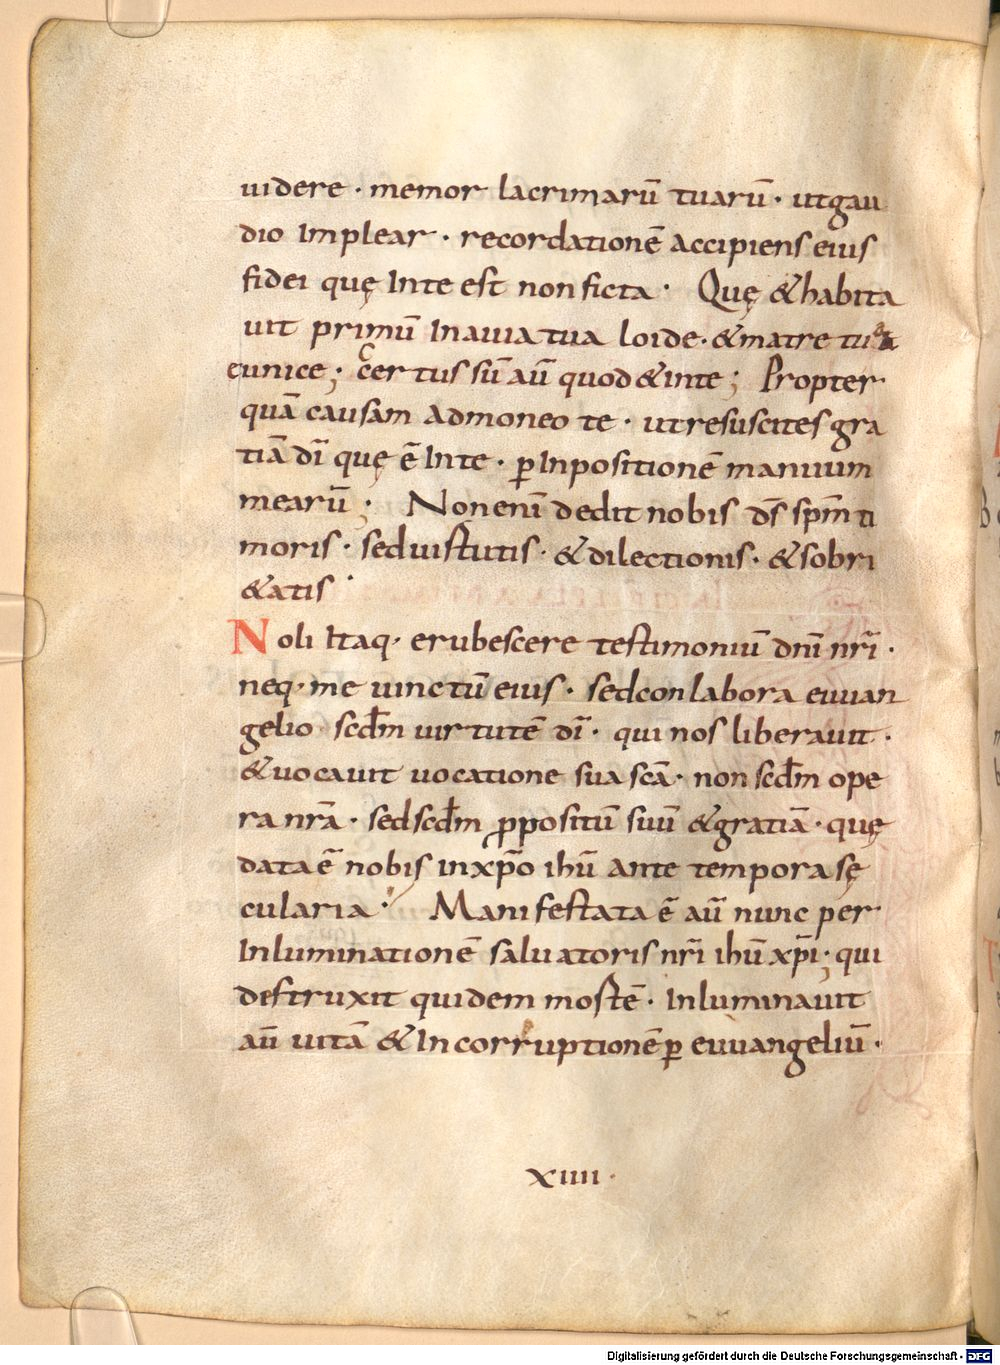 uidere · memor lacrimarū tuarū · utgau
dio Implear · recordationē accipiens eius
fidei quę Inte est non ficta · Quę &habita
uit primū Inauia tua loide · &matre tua
eunice; Certus sū aū quod &inte; Propter
quā causam admoneo te · utresuscites gra
tiā dī quę ē Inte · ꝑ Inpositionē manuum
mearū; Nonenī dedit nobis ds̄ spm̄ ti
moris · seduirtutis · &dilectionis · &sobri
&atis ·
Noli Itaq· erubescere testimoniū dnī nrī ·
neq· me uinctū eius · sedconlabora euuan
gelio scdm̄ uirtutē dī · qui nos liberauit ·
&uocauit uocatione sua scā · non scdm̄ ope
ra nrā · sedscdm̄ ꝓpositū suū &gratiā · quę
data ē nobis inxp̄o ihū ante tempora sę
cularia · Manifestata ē aū nunc per
Inluminationē saluatoris nrī ihū xp̄i; qui
destruxit quidem mortē · Inluminauit
aū uitā &Incorruptionē ꝑ euuangeliū ·
xiiii ·
Digitalisierung gefördert durch die Deutsche Forschungsgemeinschaft - DFG